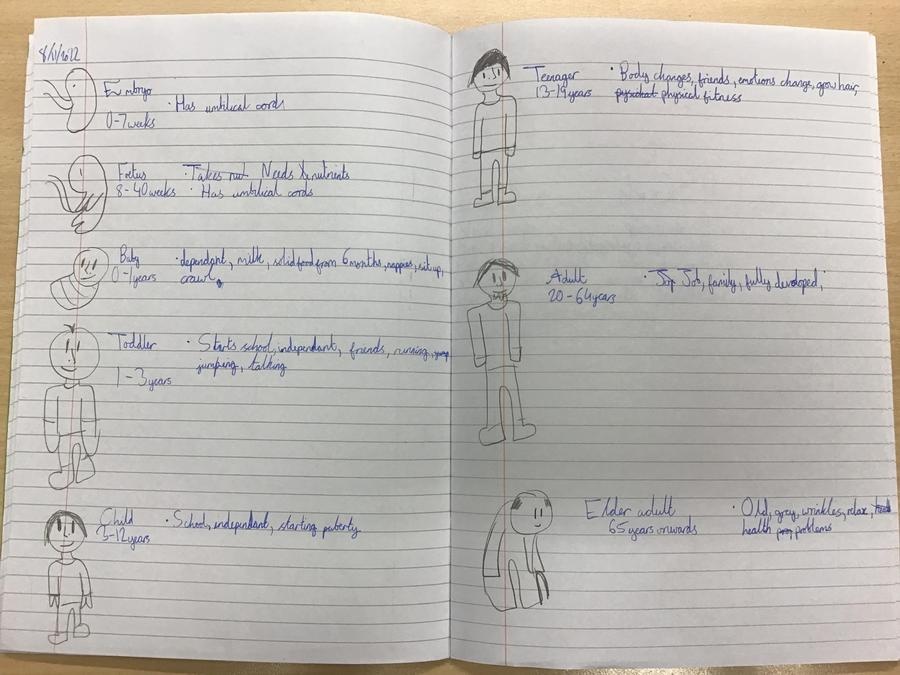 8/11/2022
Embryo
0-7 weeks
· Has umbilical cords
Foetus
8-40 weeks
· Takes nut Needs nutrients
· Has umbilical cords
Baby
0-1 years
· dependant, milk, solid food from 6 months, nappies, sit up,
crawl,
Toddler
1-3 years
· Starts school, independant, friends, running,
jumping, talking
Child
5-12 years
· School, independant, starting puberty
Teenager
13-19 years
· Body changes, friends, emotions change, grow hair,
physical fitness
Adult
20-64 years
· Job, family, fully developed,
Elder adult
65 years onwards
· Old, gray, wrinkles, relax,
health problems